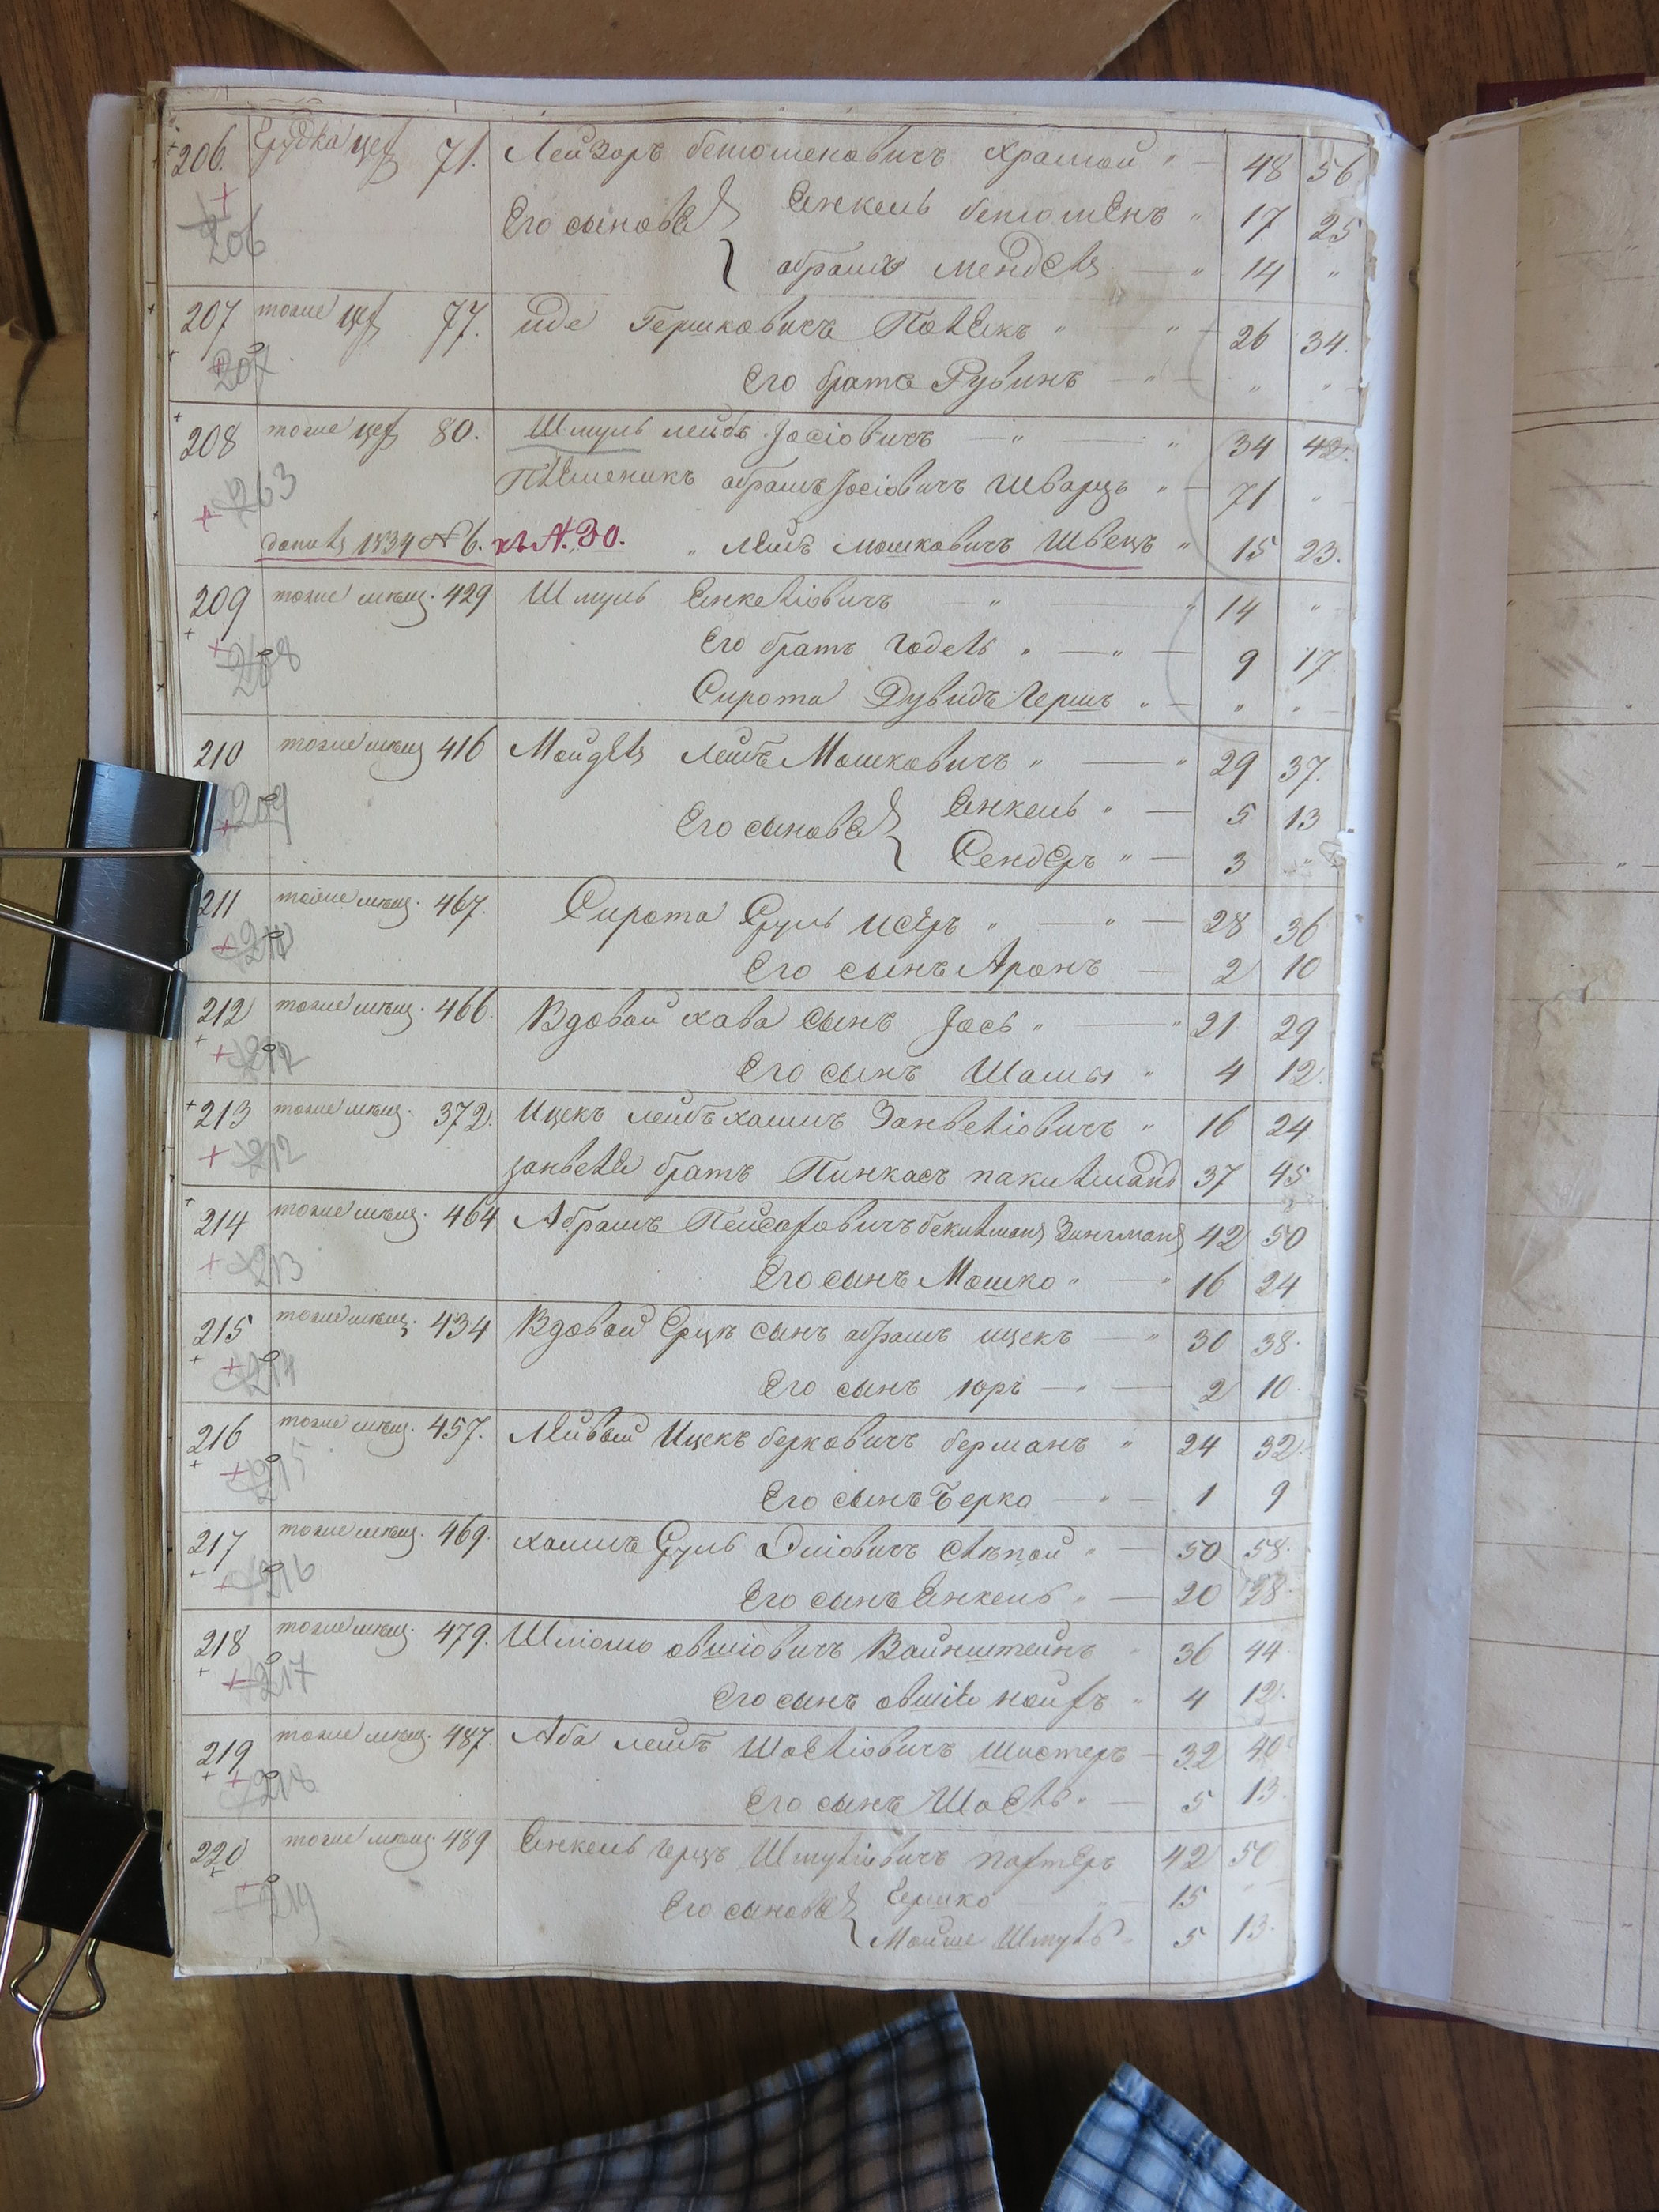 206. цех 71. Лейзоръ бенюменовичъ Храмой 48 56
206 Его сыновъя Янкель бенюменъ 17 25
абрамъ мендель 14
207 тоже цех 77. иде Гершковичъ Полякъ 26 34.
207 Его братъ Рувинъ
208 тоже цех 80. Шмуль лейбъ Іосіовичъ 34 42.
263 Племеникъ абрамъ Іосіовичъ Шварцъ 71
1834 № 6. къ №. 30. Лейбъ мошковичъ Швецъ 15 23.
209 тоже мѣщ. 429 Шмуль Янкеліовичъ 14
208 Его братъ годель 9 17
Сирота Дувидъ Гершъ
210 тоже мѣщ 416 Лейбъ Мошковичъ 29 37.
209 Его сыновъя Янкель 5 13
Сендеръ 3
211 тоже мѣщ. 467. Сирота Сруль исеръ 28 36
210 Его сынъ Аронъ 2 10
212 тоже мѣщ. 466. Вдовай хава сынъ Іось 21 29
Его сынъ Шамы 4 12.
213 тоже мѣщ. 372. Ицекъ лейбъ хаимъ Занвеліовичъ 16 24
212 занвеля братъ Пинкасъ 37 45
214 тоже мѣщ. 464 Абрамъ Зингман 42 50
213 Его сынъ Мошко 16 24
215 тоже мѣщ. 434 Вдовай сынъ абрамъ ицекъ 30 38.
214 Его сынъ юръ 2 10.
216 тоже мѣщ. 457. Ицекъ берковичъ берманъ 24 32.
215 Его сынъ Берка 1 9
217 тоже мѣщ. 469. хаимъ Сруль слѣпой 50 58.
216 Его сынъ Янкель 20 28
218 тоже мѣщ. 479. Шліомо овшіовичъ Вайнштейнъ 36 44
217 Его сынъ овшіе 4 12.
219 тоже мѣщ. 487. Аба лейбъ Шоеліовичъ Шустеръ 32 40
218 Его сынъ Шоель 5 13.
220 тоже мѣщ. 489 Янкель герцъ Шмуліовичъ 42 50
219 Его сыновъя Гершко 15
Мойше Шмуль 5 13.